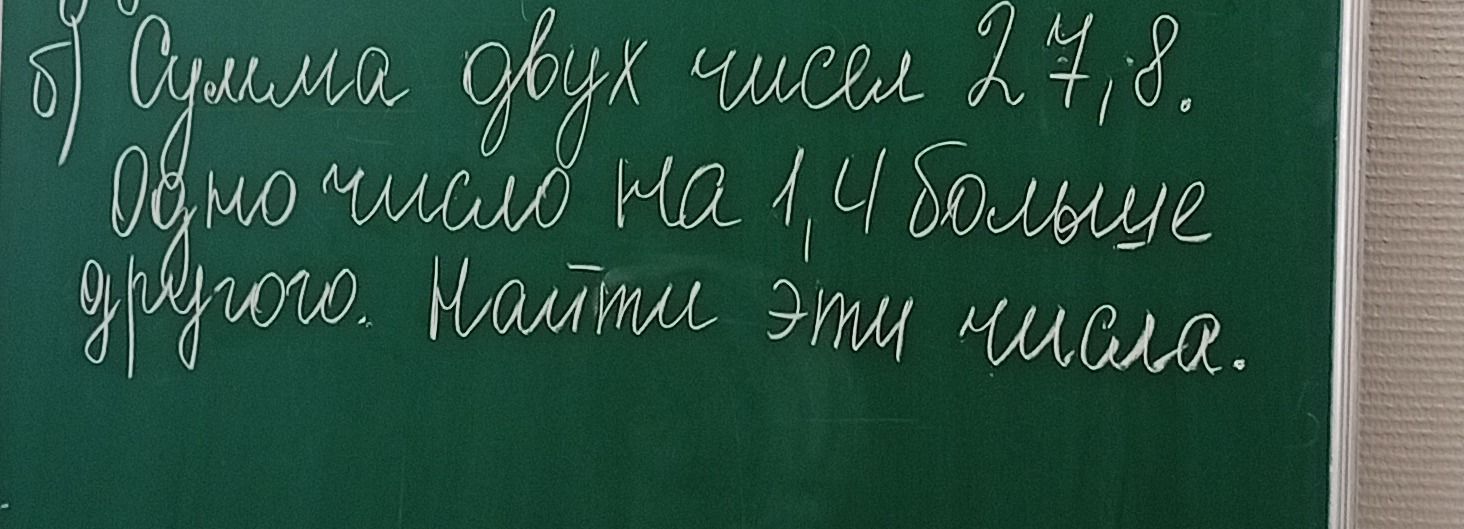 б) Сумма двух чисел 27,8.
Одно число на 1,4 больше
другого. Найти эти числа.